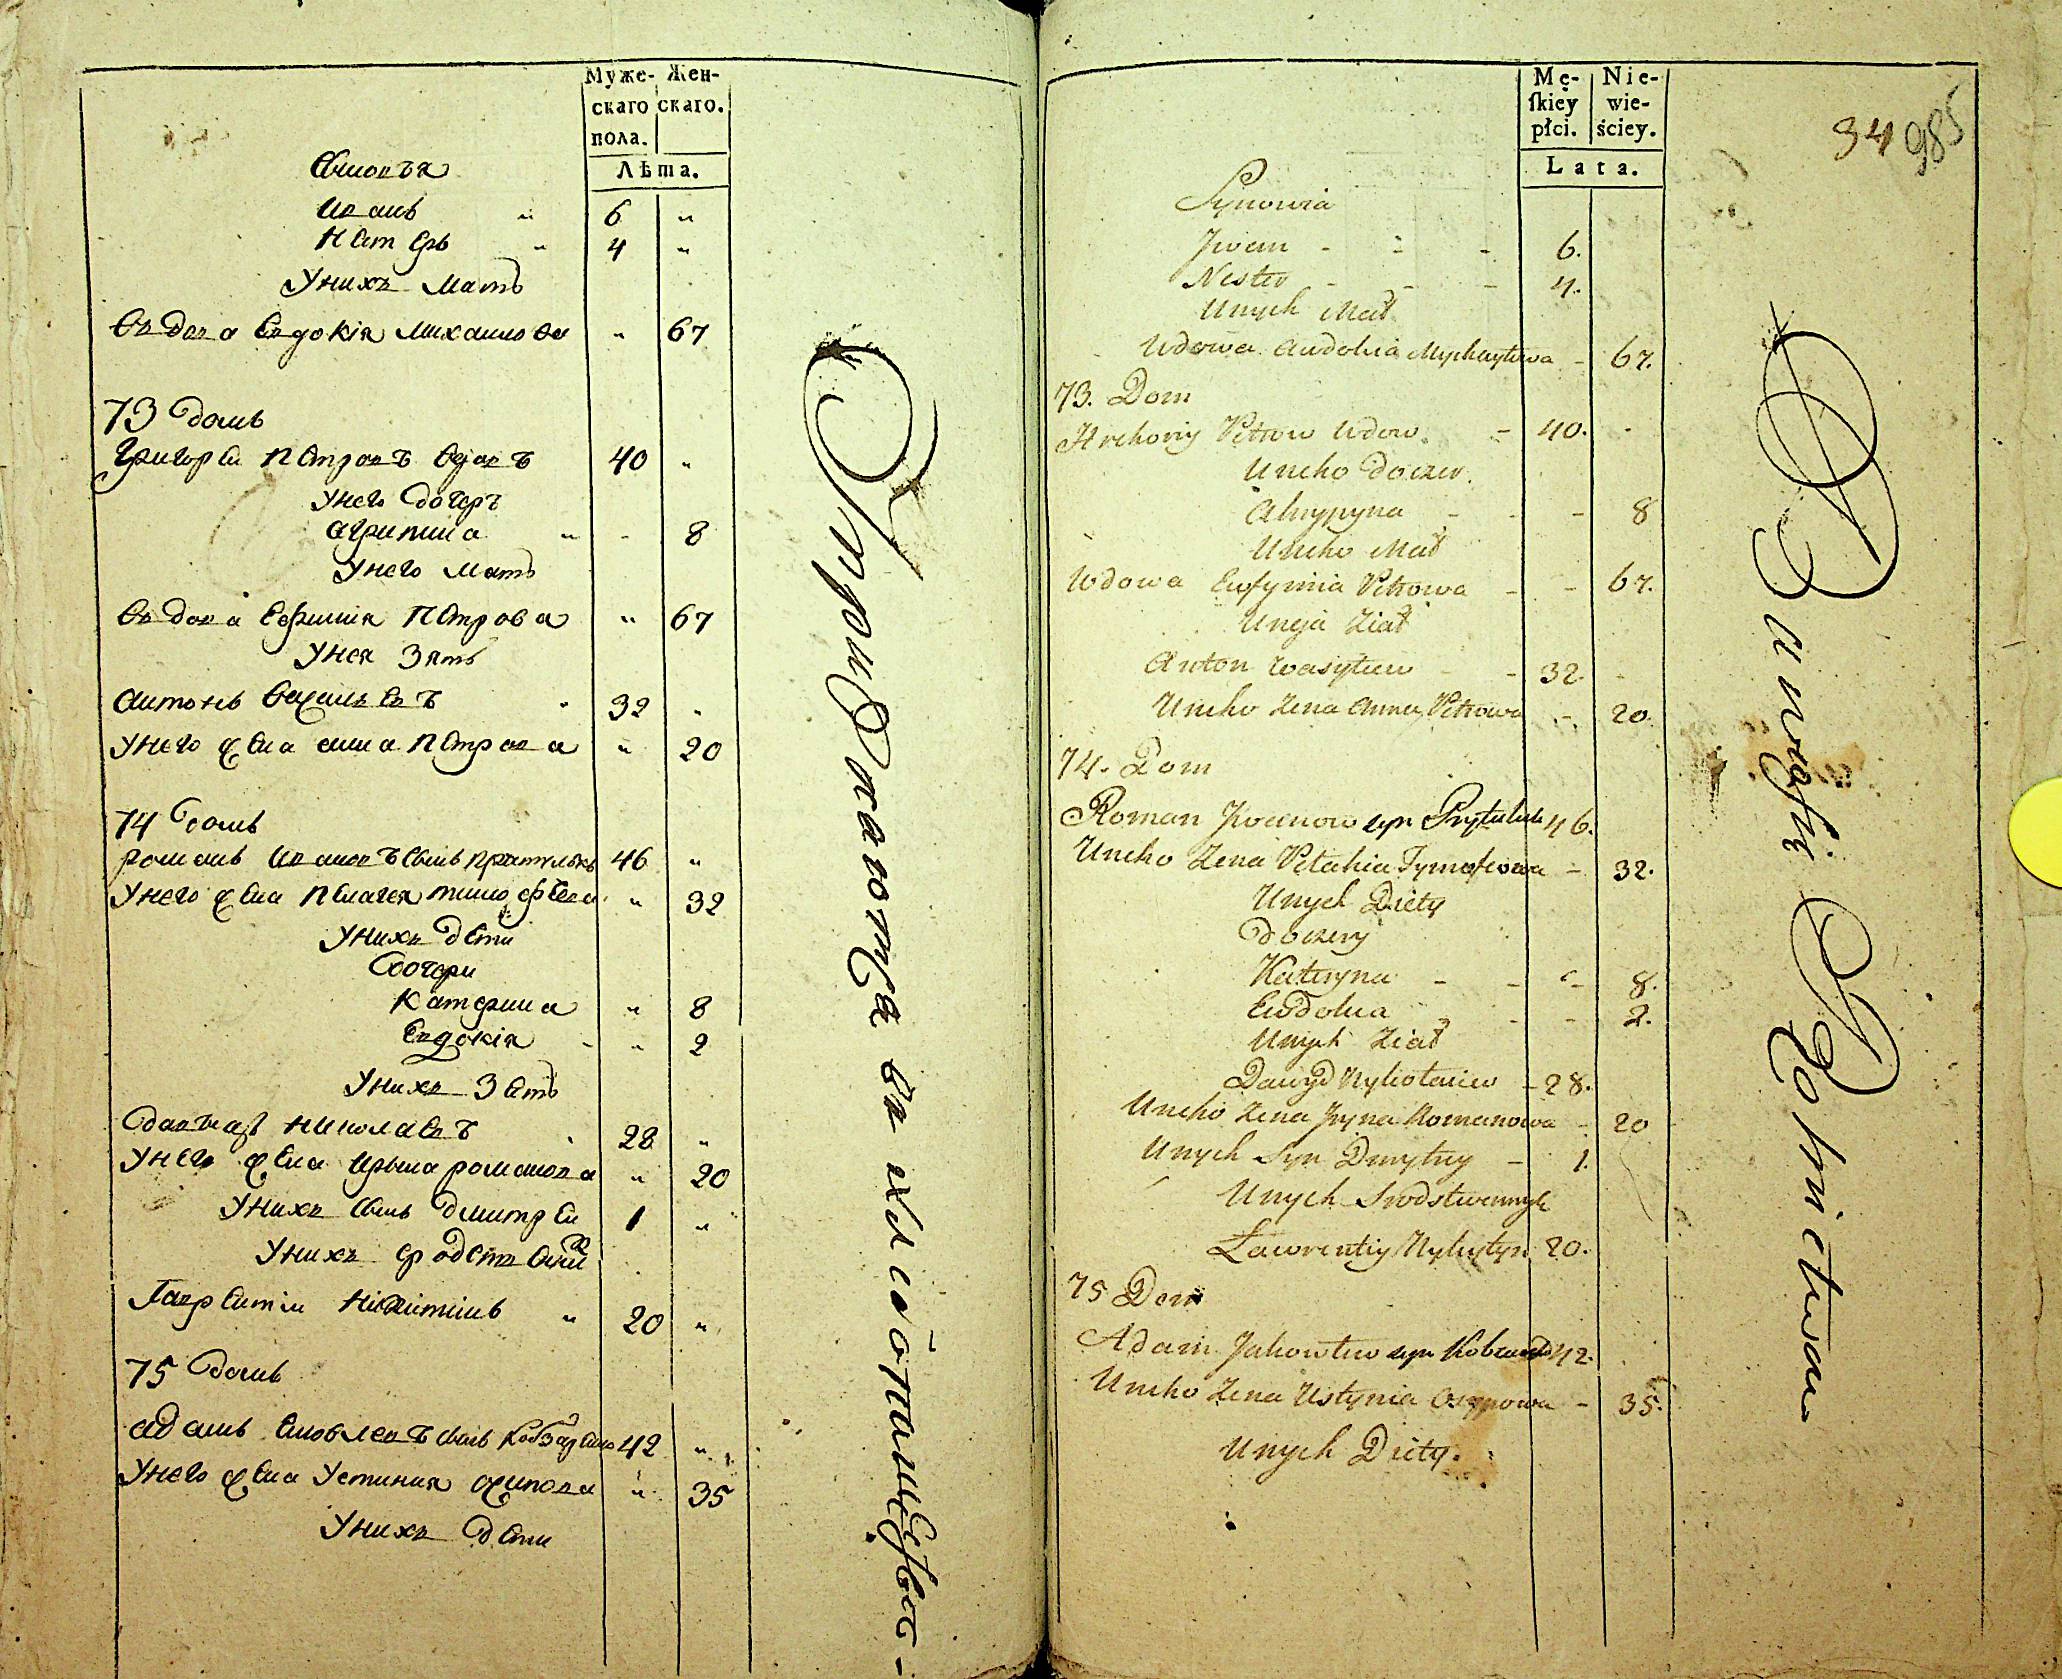 Муже- Жен-
скаго скаго.
пола.
Лѣта.
Сыновъя
Иванъ " 6 "
Нестеръ " 4 "
У нихъ Мать
Вдова Евдокія Михаилова " 67
73 домъ
Григорей Петровъ вдовъ 40 "
У него дочеръ
Агрипина " - 8
У него Мать
Вдова Ефимия Петрова " 67
У нея Зять
Антонъ Васильевъ " 32 "
У него жена анна Петрова " 20
74 домъ
романъ Ивановъ сынъ 46 "
У него жена Пелагея тимофеева " 32
У нихъ дети
дочери
Катерина " 8
Евдокія - " 2
У нихъ Зеть
николаевъ 28 "
У него жена Ирына романова " 20
У нихъ сынъ Дмитрей 1 "
У нихъ
Лаврентій Никитинъ " 20 "
75 домъ
адамъ Яковлевъ сынъ 42 "
У него жена Устиния осипова " 35
У нихъ дети
Упражнаются въ хлебопашестве-
Mę- Nie-
ſkiey wie-
płci. ściey.
Lata.
34 985
Synowia
Jwan - - - 6.
Nester - - - 4.
Unych Mat
Udowa Audokia Mychayłowa - 67.
73. Dom
Hrehoriy Petrow Wdow. - 40. -
Uneho Doczer.
Ahrypyna - - - 8
Uneho Mat
Wdowa Eufymia Petrowa - - 67.
Uneja Ziat
Anton Wasylew - - 32. -
Uneho Zena Anna Petrowa - 20.
74. Dom
Roman Jwanow syn Prytuluk 46.
Uneho Zena Pelahia Tymofeowa - 32.
Unych Diety
Doczery
Kateryna - - - 8.
Eudokia - - - 2.
Unych Ziat
Dawyd Nykołaiew - 28.
Uneho Zena Jryna Romanowa - 20
Unych Syn Dmytry - 1.
Unych Srodstwennyk
Ławrentiy Nykytyn 20.
75 Dom
Adam Jakowlew syn 42.
Uneho Zena Ustynia Osypowa - 35.
Unych Diety.
Bawiąsię Rolnictwem